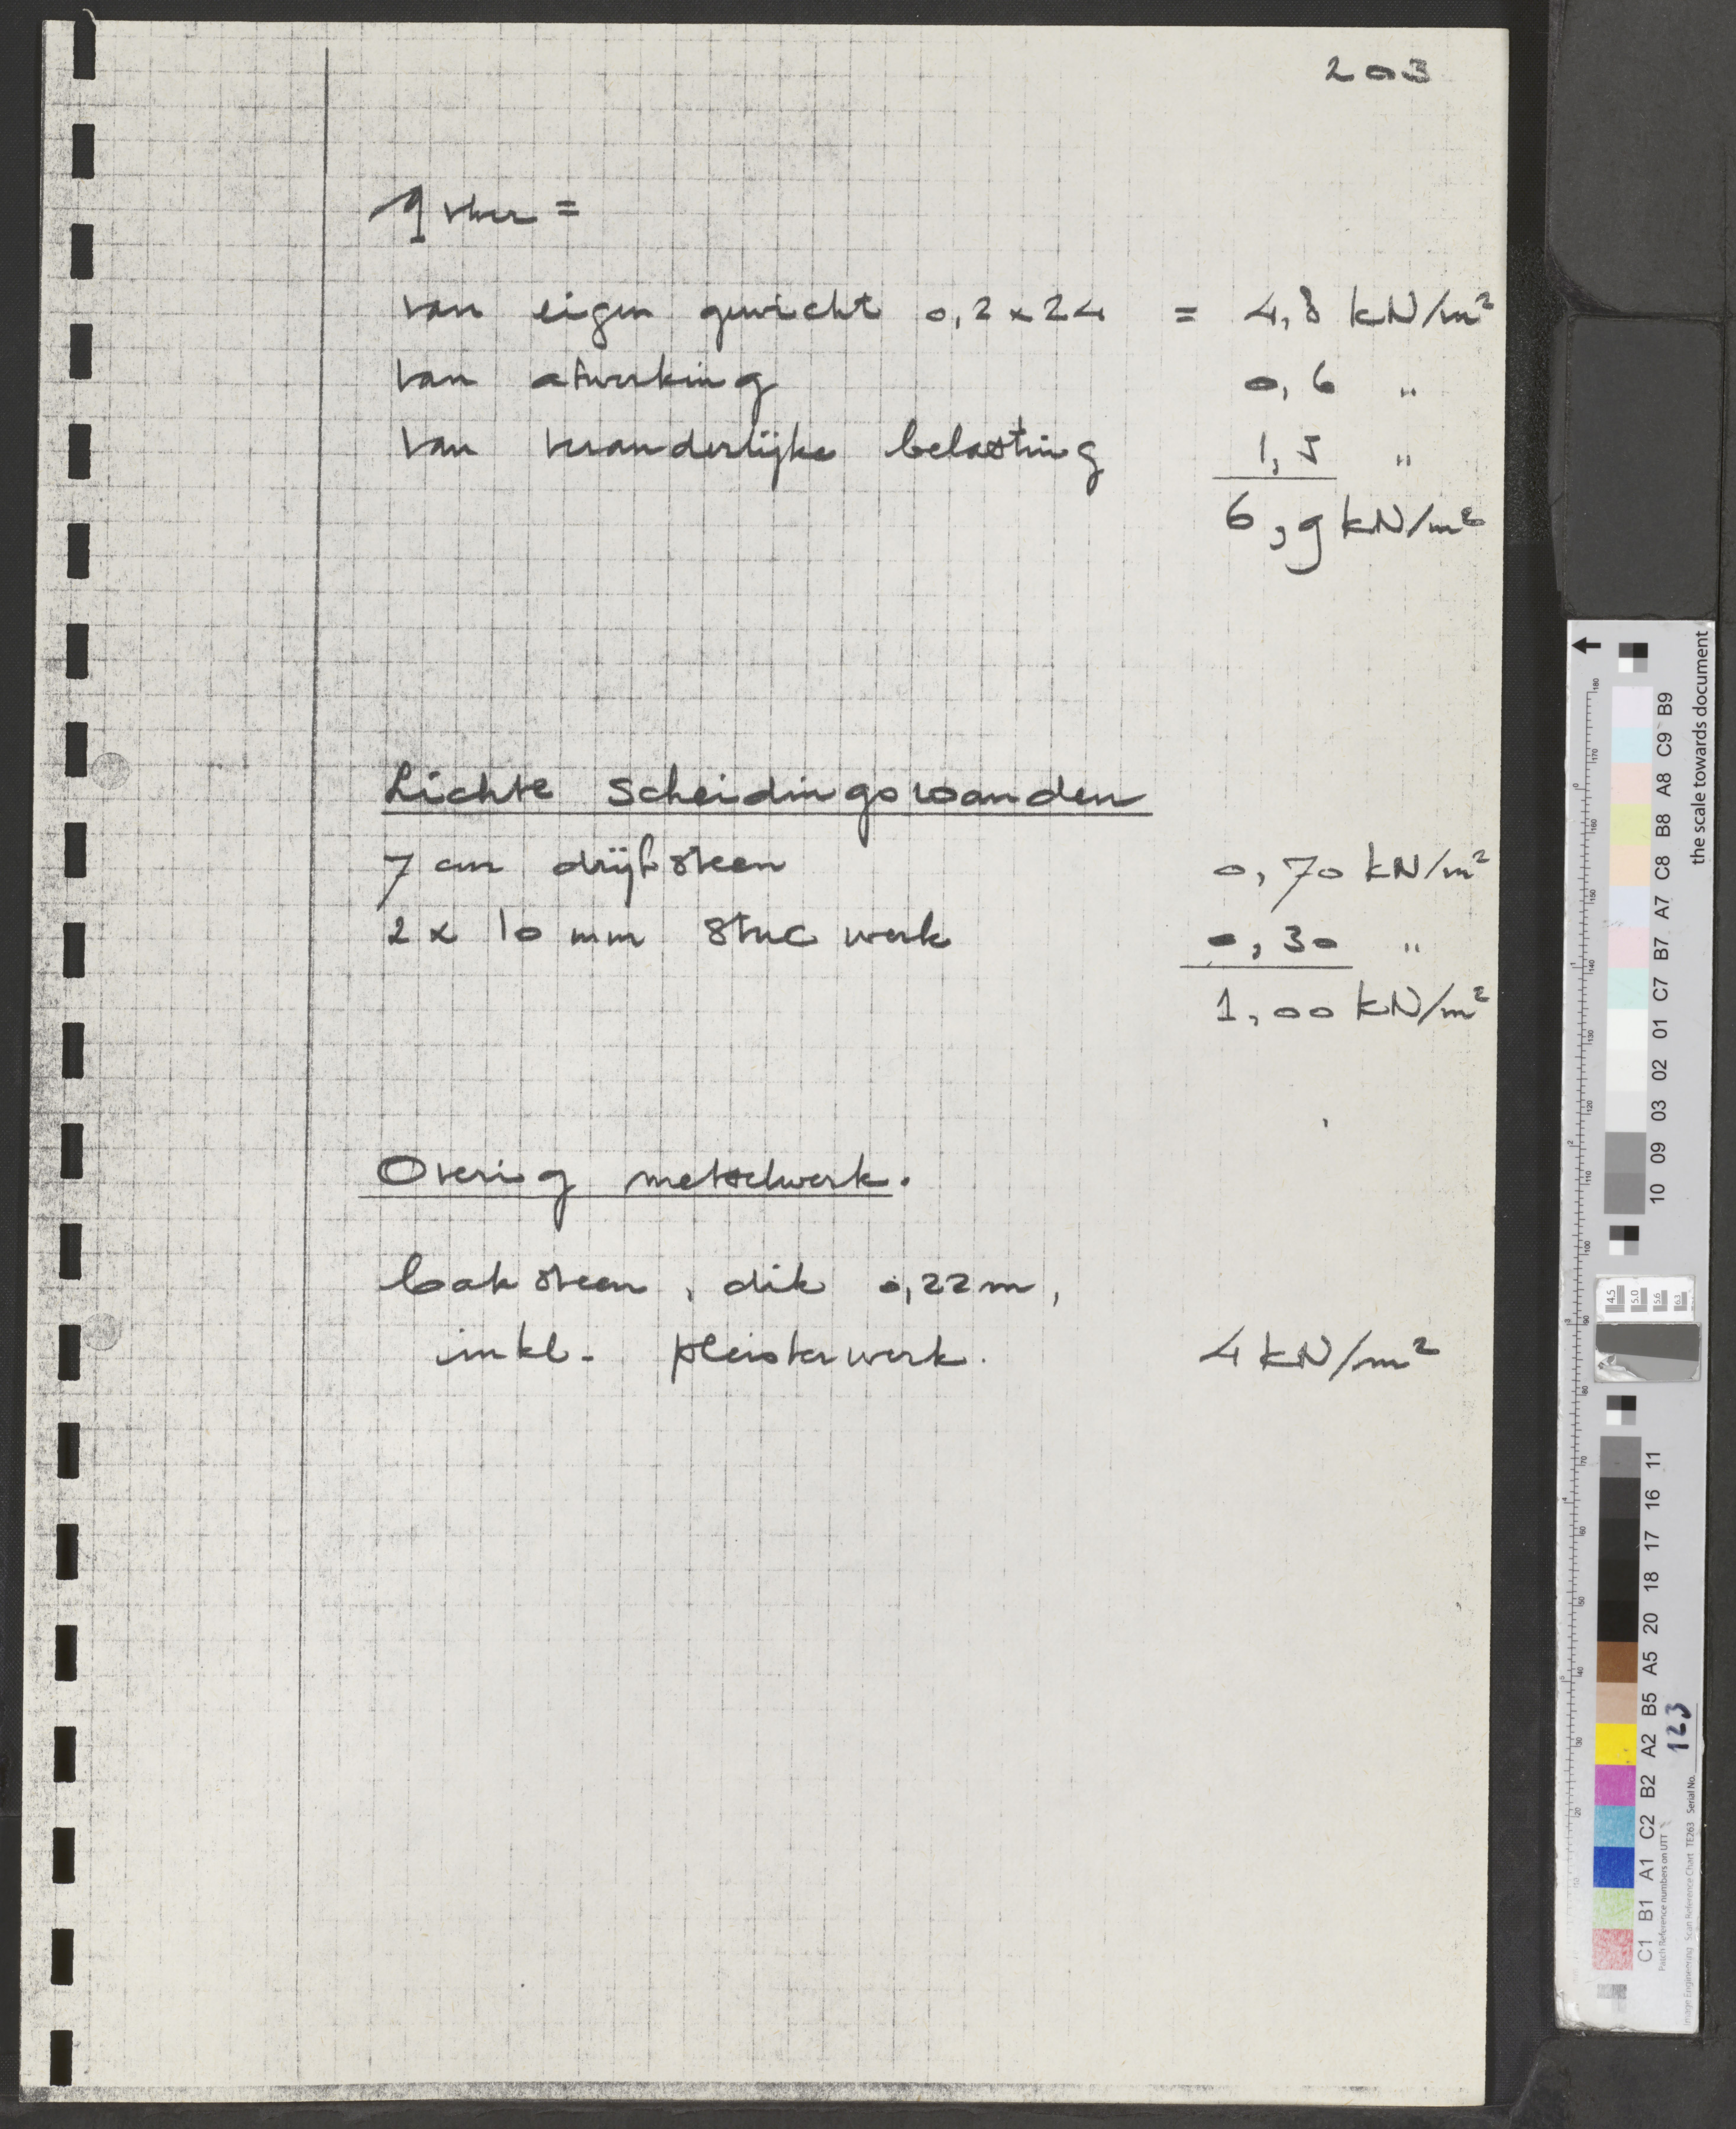 203
q vloer =
van eigen gewicht 0,2 x 24 = 4,8 kN/m²
van afwerking 0,6 "
van veranderlijke belasting 1,5 "
6,9 kN/m²
Lichte scheidingswanden
7 cm drijfsteen 0,70 kN/m²
2 x 10 mm stuc werk 0,30 "
1,00 kN/m²
Overig metselwerk.
baksteen, dik 0,22 m,
inkl. pleisterwerk. 4 kN/m²
the scale towards document
C1 B1 A1 C2 B2 A2 B5 A5 20 18 17 16 11
10 09 03 02 01 C7 B7 A7 C8 B8 A8 C9 B9
Patch Reference numbers on UTT
Image Engineering Scan Reference Chart TE263 Serial No. 123